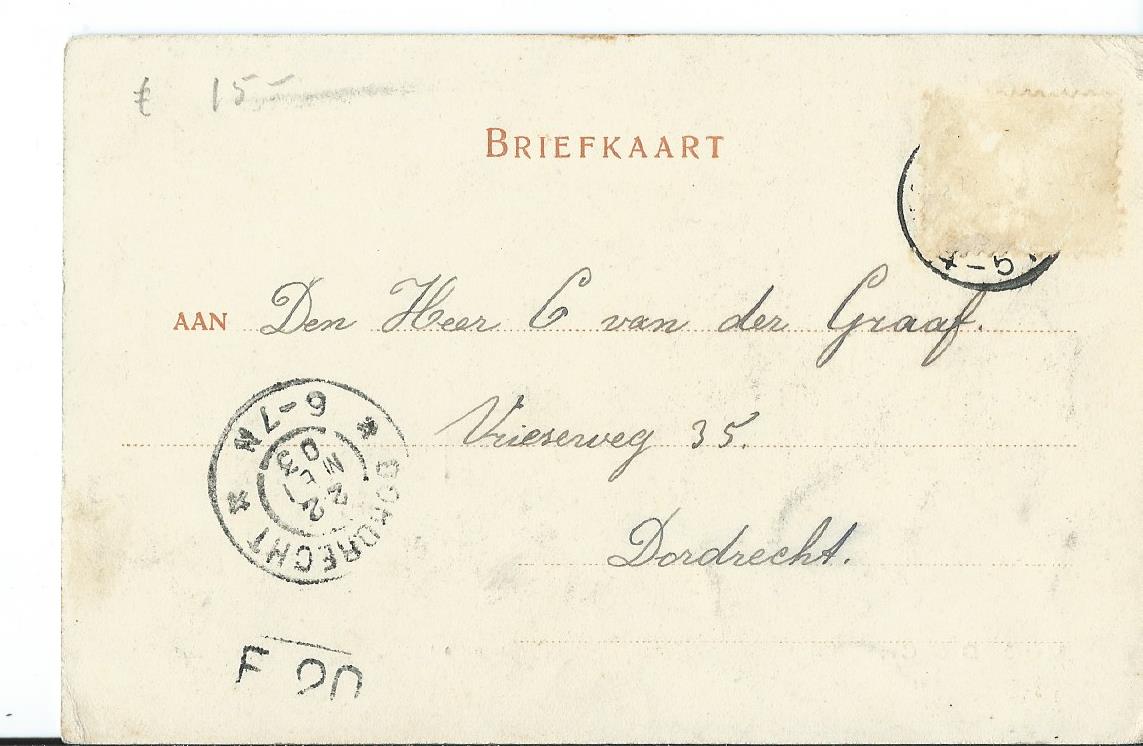 £ 15-
BRIEFKAART
AAN Den Heer C van der Graaf.
Vrieseweg 35.
Dordrecht.
DORDRECHT
6-7N
22 MEI 03